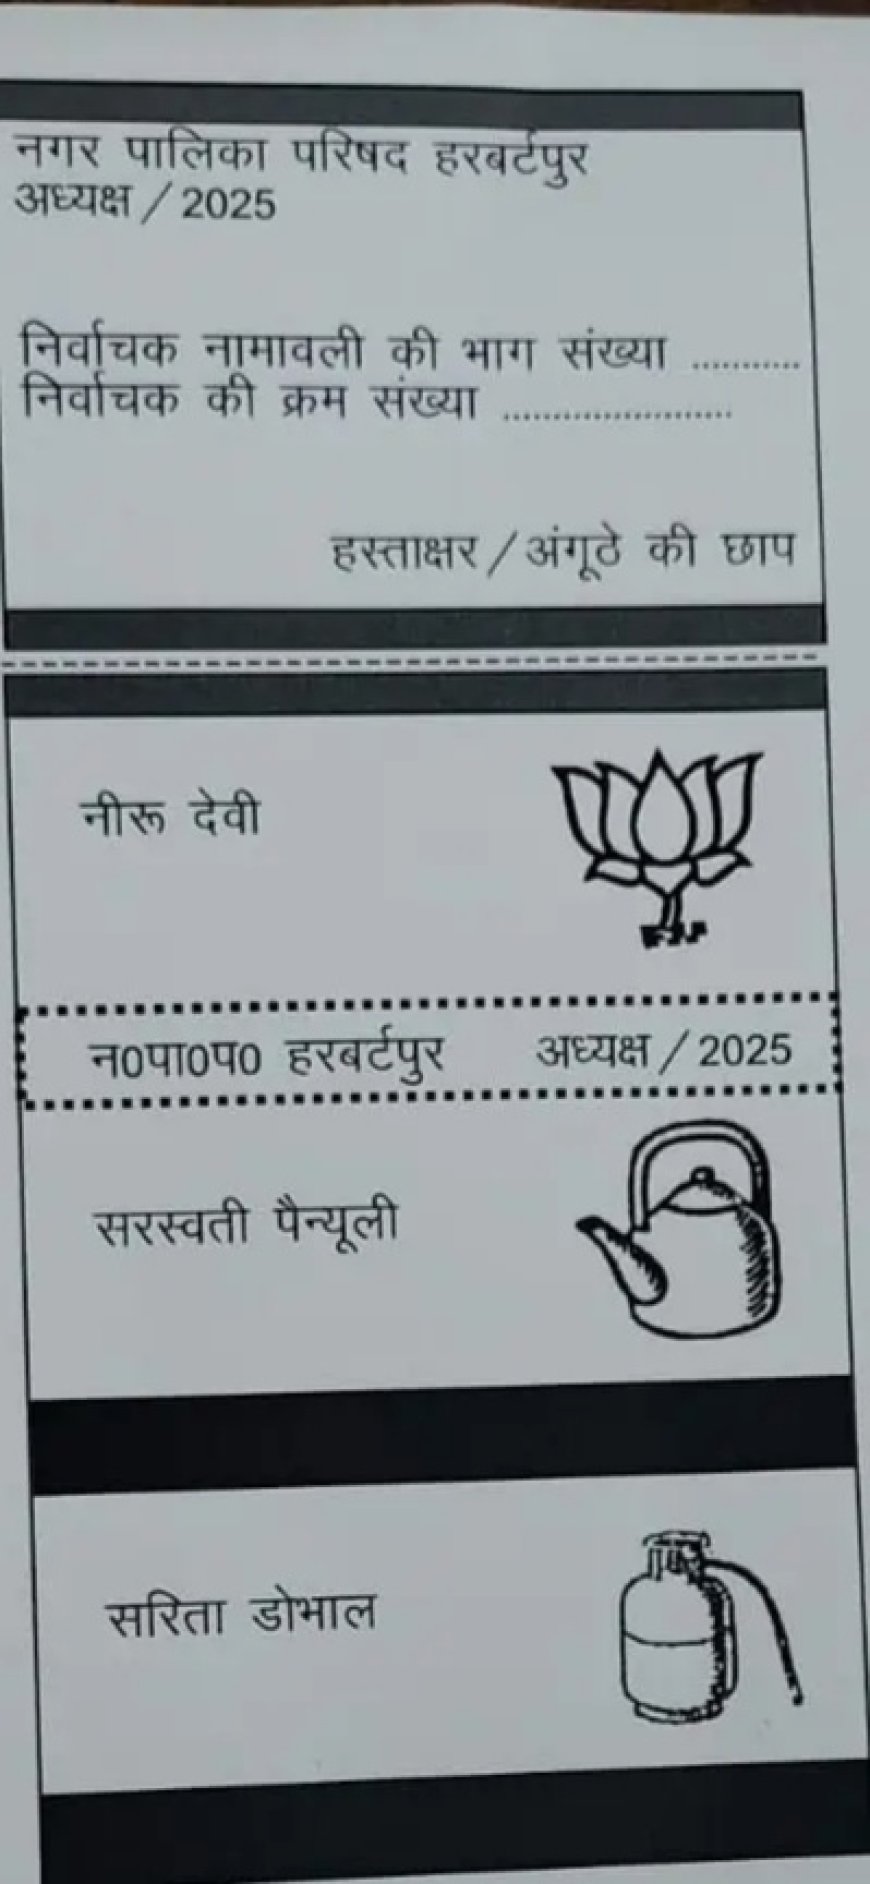 नगर पालिका परिषद हरबर्टपुर
अध्यक्ष / 2025
निर्वाचक नामावली की भाग संख्या ...........
निर्वाचक की क्रम संख्या .......................
हस्ताक्षर / अंगूठे की छाप
नीरू देवी
न0पा0प0 हरबर्टपुर अध्यक्ष / 2025
सरस्वती पैन्यूली
सरिता डोभाल